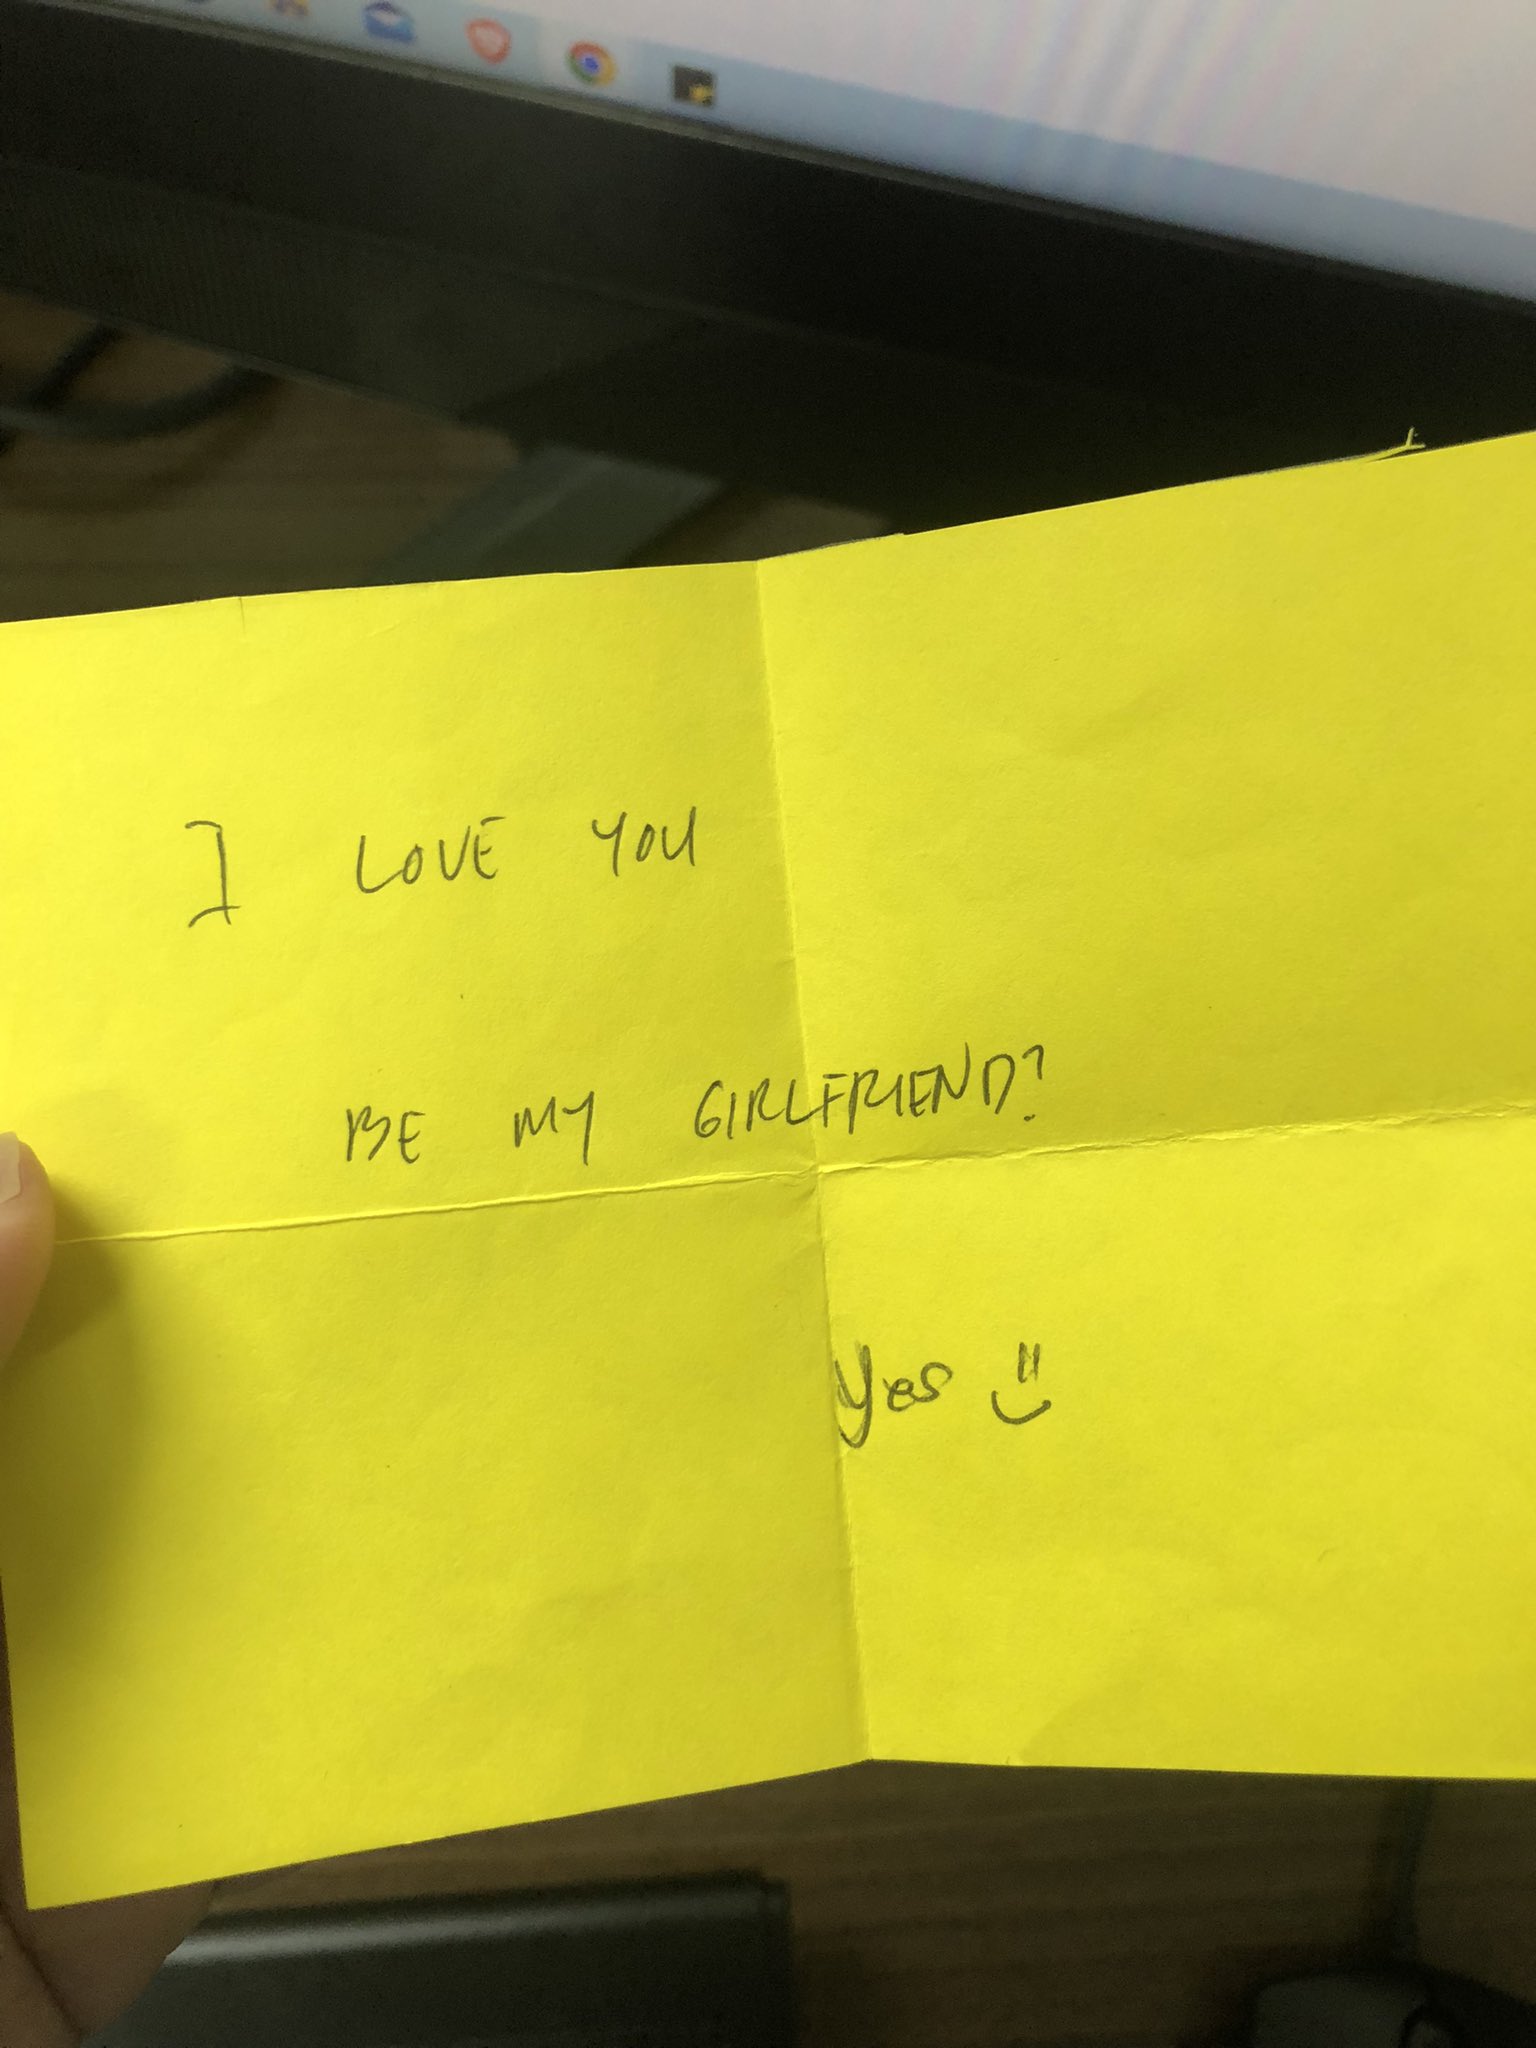 I LOVE YOU
BE MY GIRLFRIEND?
Yes